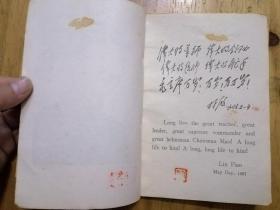 伟大的导师 伟大的领袖
伟大的统帅 伟大的舵手
毛主席万岁!万岁!万万岁!
林彪
Long live the great teacher, great
leader, great supreme commander and
great helmsman Chairman Mao! A long
life to him! A long, long life to him!
Lin Piao
May Day, 1967